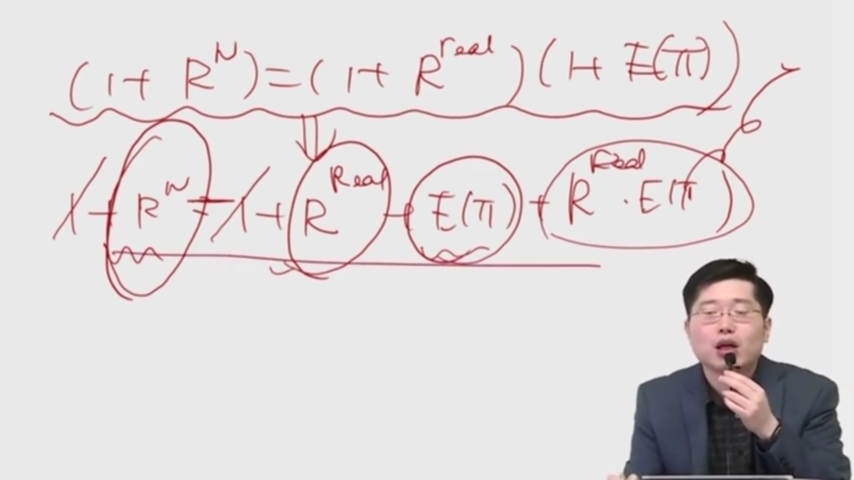 (1+ R^N)=(1+ R^real)(1+ E(π))
1+ R^N = 1+ R^Real + E(π) + R^Real · E(π)